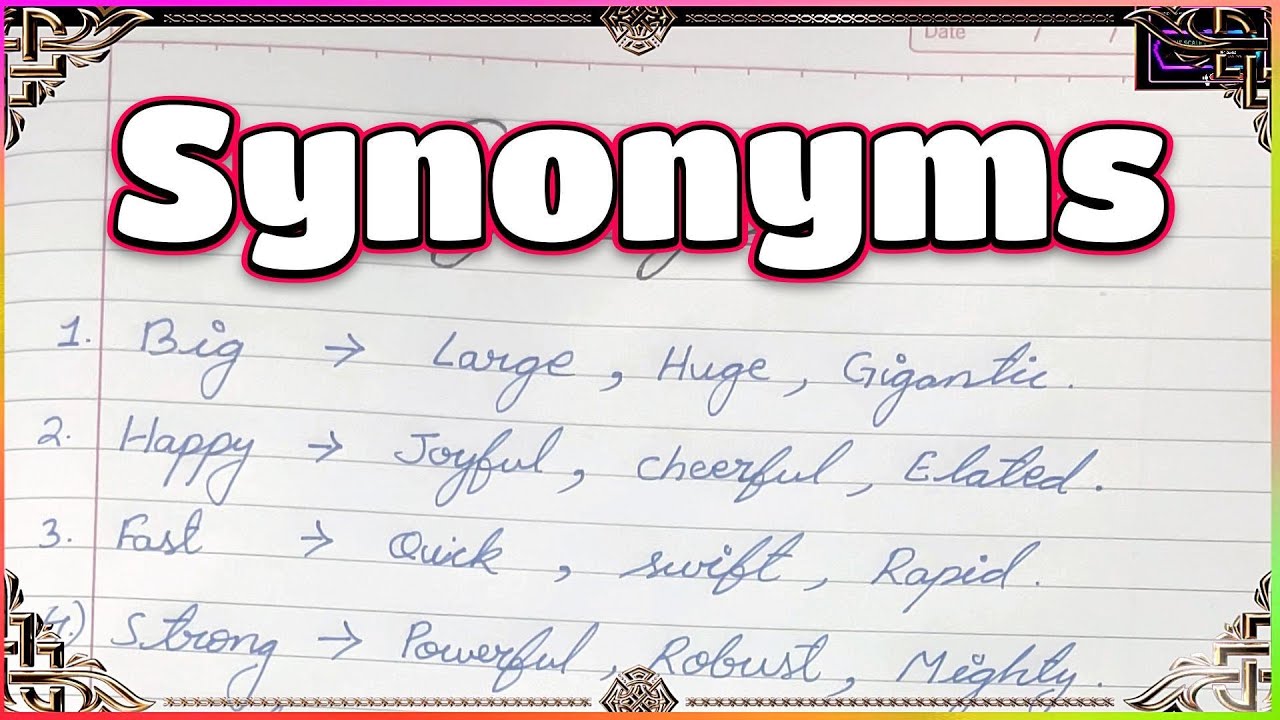 Date / /
Synonyms
1. Big → Large , Huge , Gigantic .
2. Happy → Joyful , cheerful , Elated .
3. Fast → Quick , swift , Rapid .
4.) Strong → Powerful , Robust , Mighty .